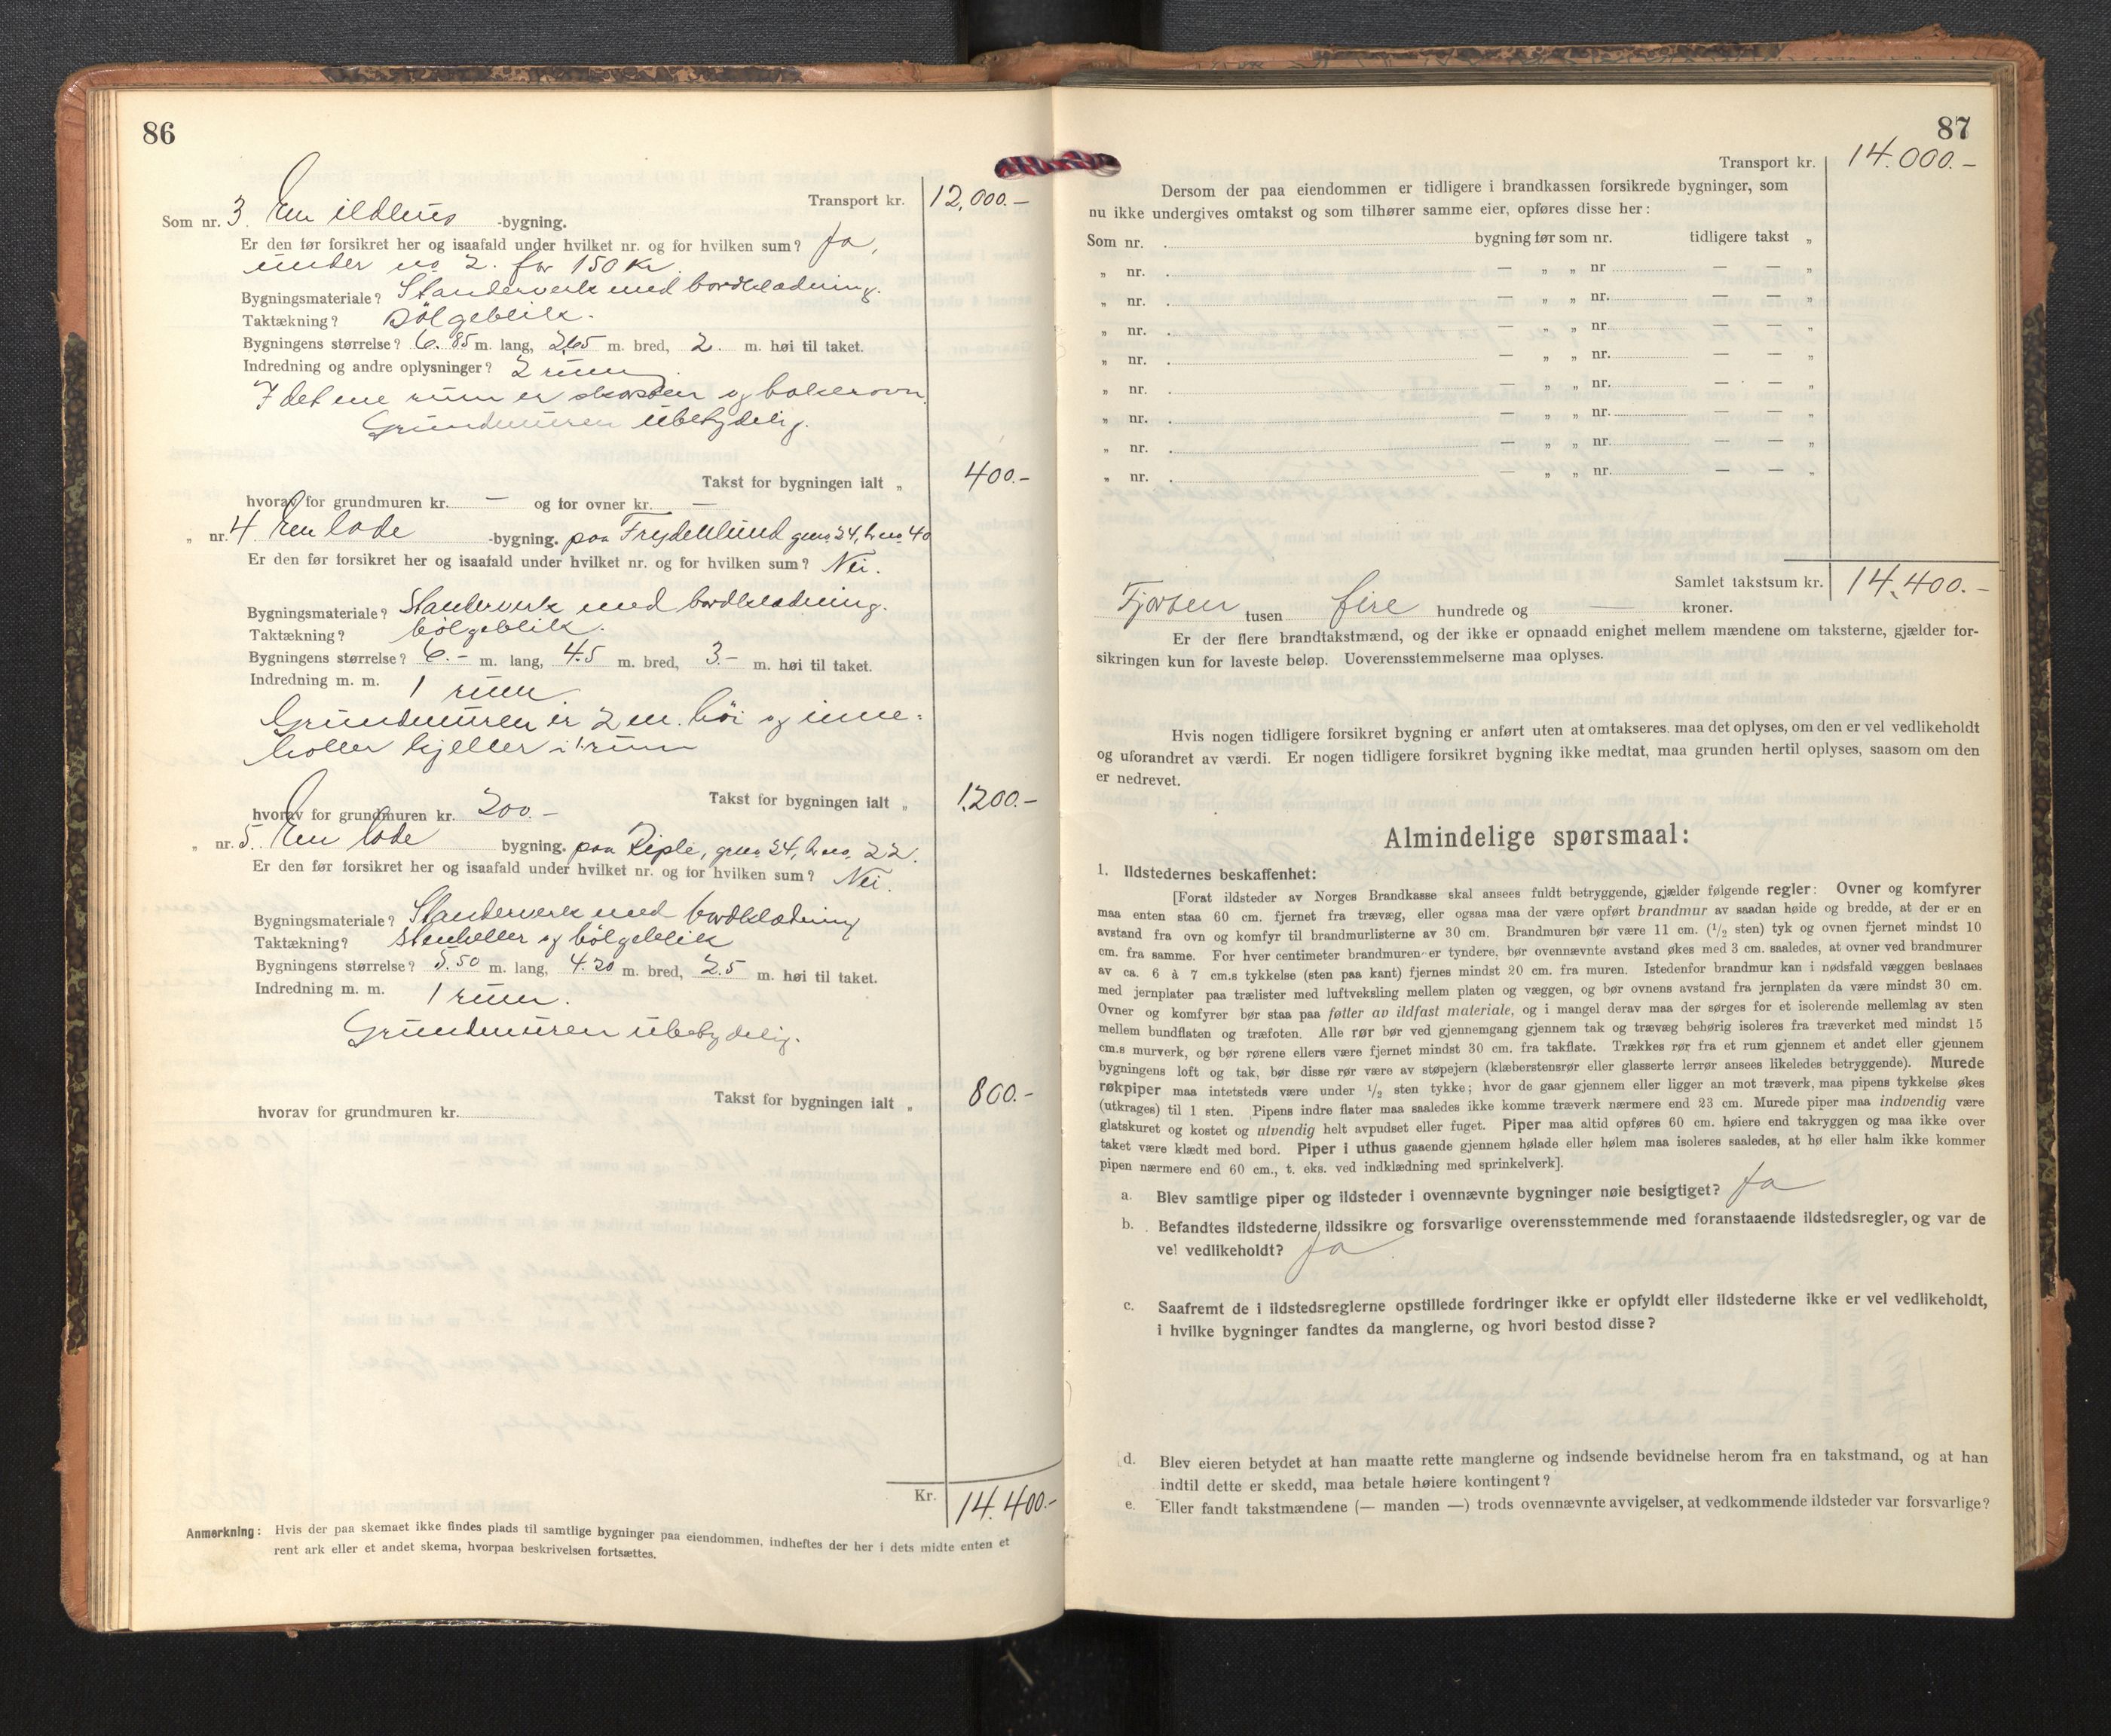 86
Transport kr. 12,000.-
Som nr. 3. En ildhus -bygning.
Er den før forsikret her og isaafald under hvilket nr. og for hvilken sum? Ja,
under no 2. for 150 Kr.
Bygningsmateriale? Standerverk med bordklædning.
Taktækning? Bölgeblik.
Bygningens størrelse? 6.85 m. lang, 3,65 m. bred, 2. m. høi til taket.
Indredning og andre oplysninger? 2 rum.
I det ene rum er skorsten og bakerovn.
Grundmuren ubetydelig.
Takst for bygningen ialt „ 400.-
hvorav for grundmuren kr. — og for ovner kr. —
„ nr. 4. En lade -bygning. paa Frydenlund gno. 24, bno. 40
Er den før forsikret her og isaafald under hvilket nr. og for hvilken sum? Nei.
Bygningsmateriale? Standerverk med bordklædning.
Taktækning? bölgeblik.
Bygningens størrelse? 6.- m. lang, 4.5 m. bred, 3.- m. høi til taket.
Indredning m. m. 1 rum.
Grundmuren er 2 m. höi og inne-
holler kjeller i 1 rum
Takst for bygningen ialt „ 1.200.-
hvorav for grundmuren kr. 200.-
„ nr. 5. En lade bygning. paa Riple, gno. 24, bno. 22.
Er den før forsikret her og isaafald under hvilket nr. og for hvilken sum? Nei.
Bygningsmateriale? Standerverk med bordklædning
Taktækning? Stenheller og bölgeblik
Bygningens størrelse? 5.50 m. lang, 4.20 m. bred, 2.5 m. høi til taket.
Indredning m. m. 1 rum.
Grundmuren ubetydelig.
Takst for bygningen ialt „ 800.-
hvorav for grundmuren kr.
Kr. 14.400.-
Anmerkning: Hvis der paa skemaet ikke findes plads til samtlige bygninger paa eiendommen, indheftes der her i dets midte enten et
rent ark eller et andet skema, hvorpaa beskrivelsen fortsættes.
87
Transport kr. 14.000.-
Dersom der paa eiendommen er tidligere i brandkassen forsikrede bygninger, som
nu ikke undergives omtakst og som tilhører samme eier, opføres disse her:
Som nr. bygning før som nr. tidligere takst „
„ nr. — „ „ nr — — „
„ nr. — „ „ nr. — — „
„ nr. — „ „ nr. — — „
„ nr. — „ „ nr. — — „
„ nr. — „ „ nr. — — „
„ nr. — „ „ nr. — — „
„ nr. — „ „ nr. — — „
„ nr. — „ „ nr. — — „
Samlet takstsum kr. 14.400.-
Fjorten tusen fire hundrede og — kroner.
Er der flere brandtakstmænd, og der ikke er opnaadd enighet mellem mændene om taksterne, gjælder for-
sikringen kun for laveste beløp. Uoverensstemmelserne maa oplyses.
Hvis nogen tidligere forsikret bygning er anført uten at omtakseres, maa det oplyses, om den er vel vedlikeholdt
og uforandret av værdi. Er nogen tidligere forsikret bygning ikke medtat, maa grunden hertil oplyses, saasom om den
er nedrevet.
Almindelige spørsmaal:
1. Ildstedernes beskaffenhet:
[Forat ildsteder av Norges Brandkasse skal ansees fuldt betryggende, gjælder følgende regler: Ovner og komfyrer
maa enten staa 60 cm. fjernet fra trævæg, eller ogsaa maa der være opført brandmur av saadan høide og bredde, at der er en
avstand fra ovn og komfyr til brandmurlisterne av 30 cm. Brandmuren bør være 11 cm. (1/2 sten) tyk og ovnen fjernet mindst 10
cm. fra samme. For hver centimeter brandmuren er tyndere, bør ovennævnte avstand økes med 3 cm. saaledes, at ovner ved brandmurer
av ca. 6 à 7 cm.s tykkelse (sten paa kant) fjernes mindst 20 cm. fra muren. Istedenfor brandmur kan i nødsfald væggen beslaaes
med jernplater paa trælister med luftveksling mellem platen og væggen, og bør ovnens avstand fra jernplaten da være mindst 30 cm.
Ovner og komfyrer bør staa paa føtter av ildfast materiale, og i mangel derav maa der sørges for et isolerende mellemlag av sten
mellem bundflaten og træfoten. Alle rør bør ved gjennemgang gjennem tak og trævæg behørig isoleres fra træverket med mindst 15
cm.s murverk, og bør rørene ellers være fjernet mindst 30 cm. fra takflate. Trækkes rør fra et rum gjennem et andet eller gjennem
bygningens loft og tak, bør disse rør være av støpejern (klæberstensrør eller glasserte lerrør ansees likeledes betryggende). Murede
røkpiper maa intetsteds være under 1/2 sten tykke; hvor de gaar gjennem eller ligger an mot træverk, maa pipens tykkelse økes
(utkrages) til 1 sten. Pipens indre flater maa saaledes ikke komme træverk nærmere end 23 cm. Murede piper maa indvendig være
glatskuret og kostet og utvendig helt avpudset eller fuget. Piper maa altid opføres 60 cm. høiere end takryggen og maa ikke over
taket være klædt med bord. Piper i uthus gaaende gjennem hølade eller hølem maa isoleres saaledes, at hø eller halm ikke kommer
pipen nærmere end 60 cm., t. eks. ved indklædning med sprinkelverk].
a. Blev samtlige piper og ildsteder i ovennævnte bygninger nøie besigtiget? Ja
b. Befandtes ildstederne ildssikre og forsvarlige overensstemmende med foranstaaende ildstedsregler, og var de
vel vedlikeholdt? Ja
c. Saafremt de i ildstedsreglerne opstillede fordringer ikke er opfyldt eller ildstederne ikke er vel vedlikeholdt,
i hvilke bygninger fandtes da manglerne, og hvori bestod disse?
d. Blev eieren betydet at han maatte rette manglerne og indsende bevidnelse herom fra en takstmand, og at han
indtil dette er skedd, maa betale høiere kontingent?
e. Eller fandt takstmændene (— manden —) trods ovennævnte avvigelser, at vedkommende ildsteder var forsvarlige?